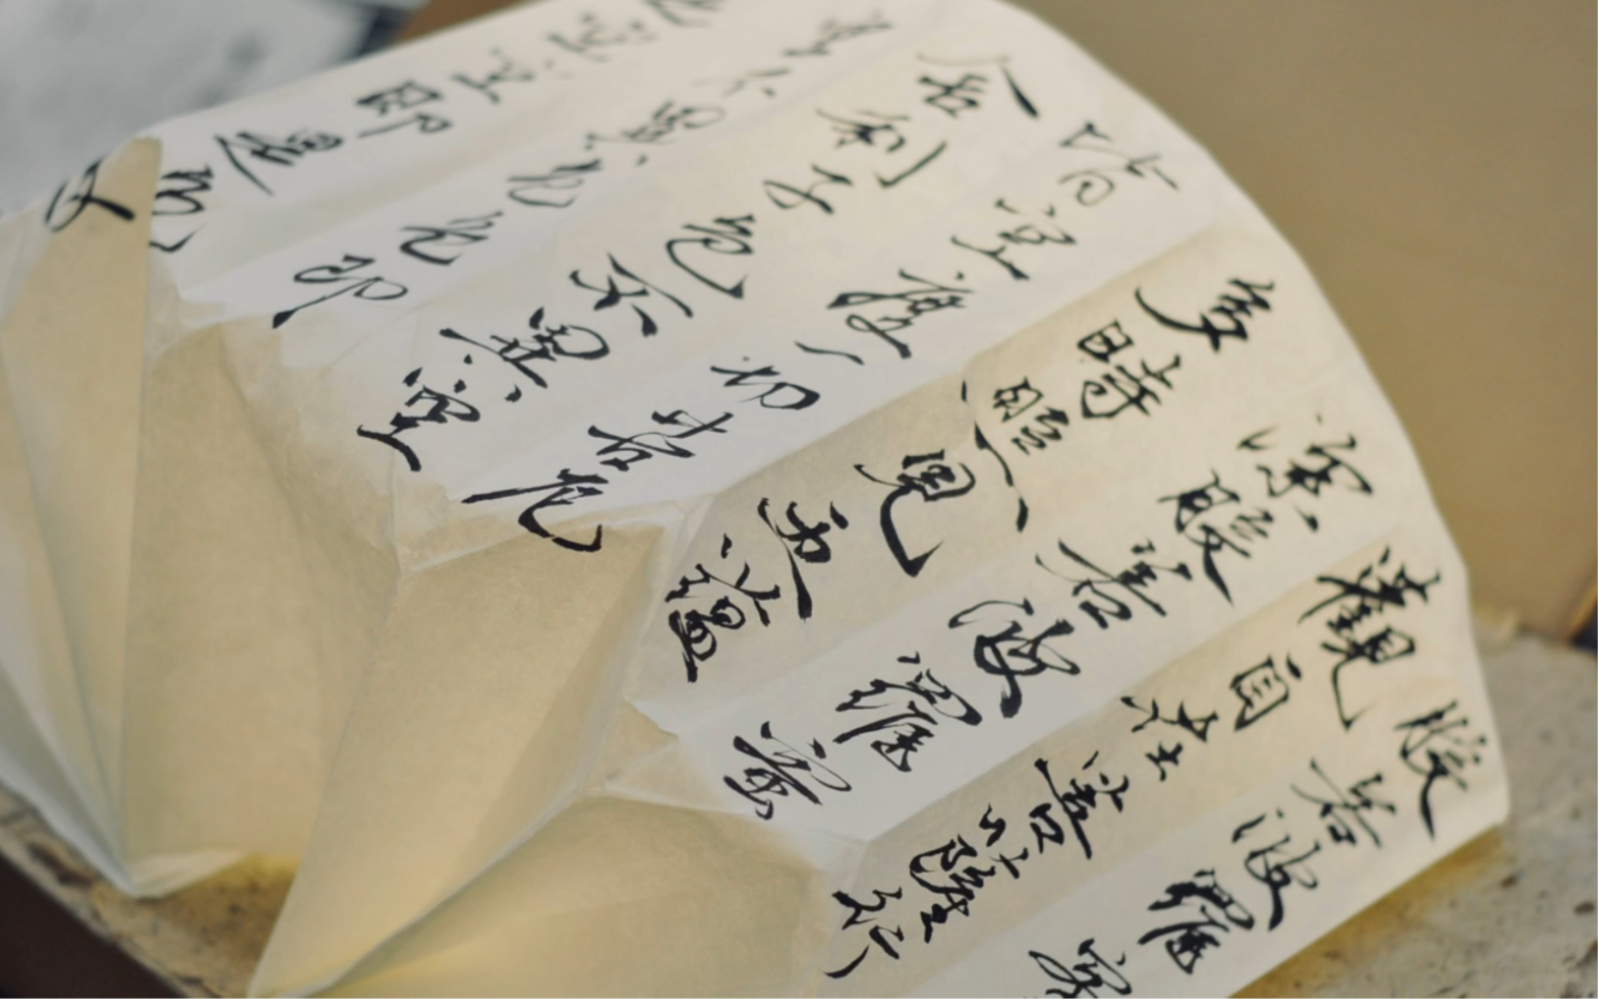 般若波羅蜜
觀自在菩薩行
深般若波羅蜜
多時照見五蘊
皆空度一切苦厄
舍利子色不異空
空不異色色即
是空空即是色